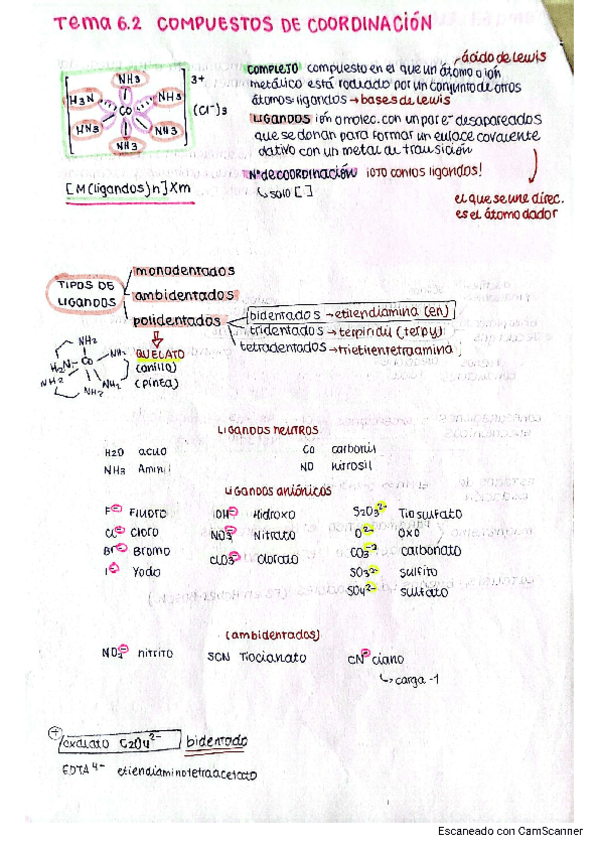 Tema 6.2 COMPUESTOS DE COORDINACIÓN
NH3
H3N
NH3
Co
HN3
NH3
NH3
3+
(Cl-)3
[M(ligandos)n]Xm
ácido de Lewis
COMPLEJO compuesto en el que un átomo o ión
metálico está rodeado por un conjunto de otros
átomos: ligandos → bases de Lewis
LIGANDOS ión o molec. con un par e- desapareados
que se donan para formar un enlace covalente
dativo con un metal de transición
Nº de coordinación ¡OJO con los ligandos!
↳ solo [ ]
el que se une direc.
es el átomo dador
TIPOS DE
LIGANDOS
monodentados
ambidentados
polidentados
bidentados → etilendiamina (en)
tridentados → terpindil (terpy)
tetradentados → trietilentetraamina
QUELATO
(anillo)
(pinza)
NH2
H2N
Co
NH2
NH2
NH2
NH2
LIGANDOS NEUTROS
H2O acuo
CO carbonil
NH3 Aminil
NO nitrosil
LIGANDOS ANIÓNICOS
F- Fluoro
OH- Hidroxo
S2O3 2- Tiosulfato
Cl- Cloro
NO3- Nitrato
O2- OXO
Br- Bromo
ClO3- Clorato
CO3-2 carbonato
I- Yodo
SO3 2- sulfito
SO4 2- sulfato
(ambidentados)
NO2- nitrito
SCN Tiocianato
CN- ciano
↳ carga -1
+
oxalato C2O4 2-
bidentado
EDTA 4- etilendiaminotetraacetato
Escaneado con CamScanner